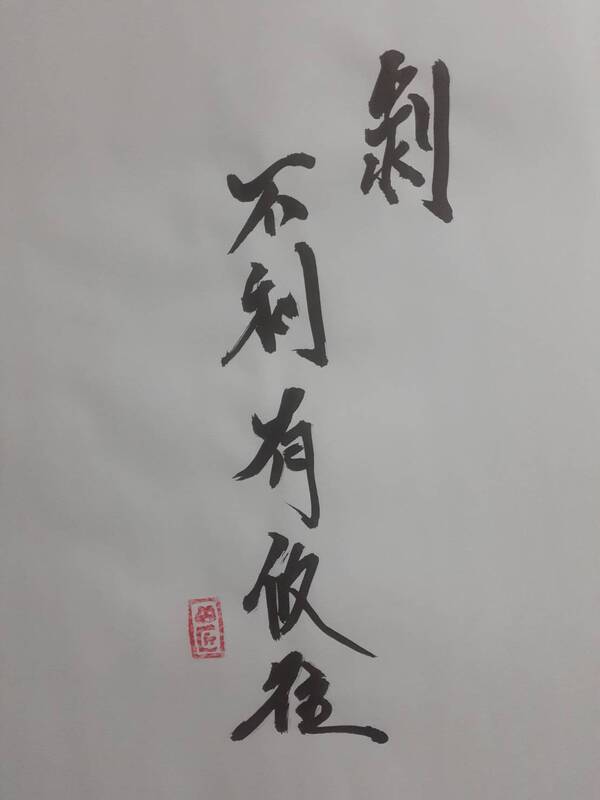 剝
不利有攸往